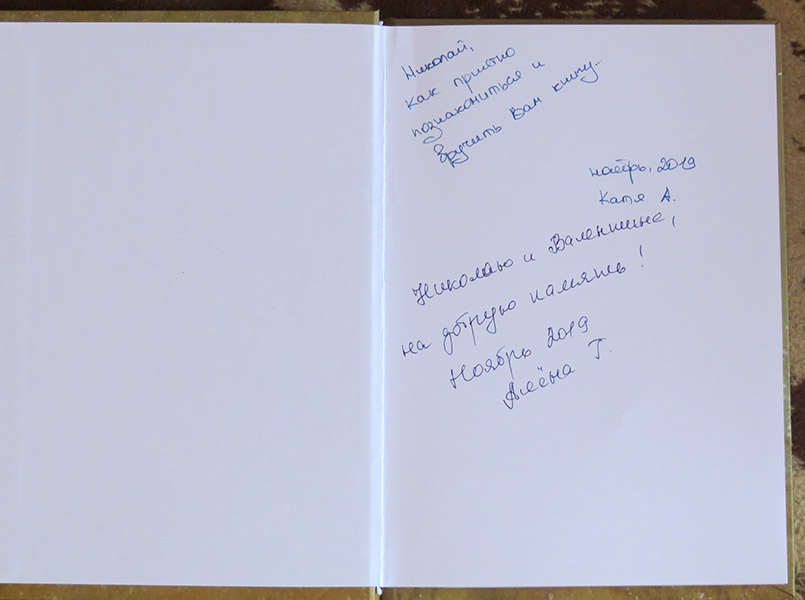 Николай,
как приятно
познакомиться и
вручить Вам книгу...
ноябрь, 2019
Катя А.
Николаю и Валентине,
на добрую память!
Ноябрь 2019
Алёна Т.